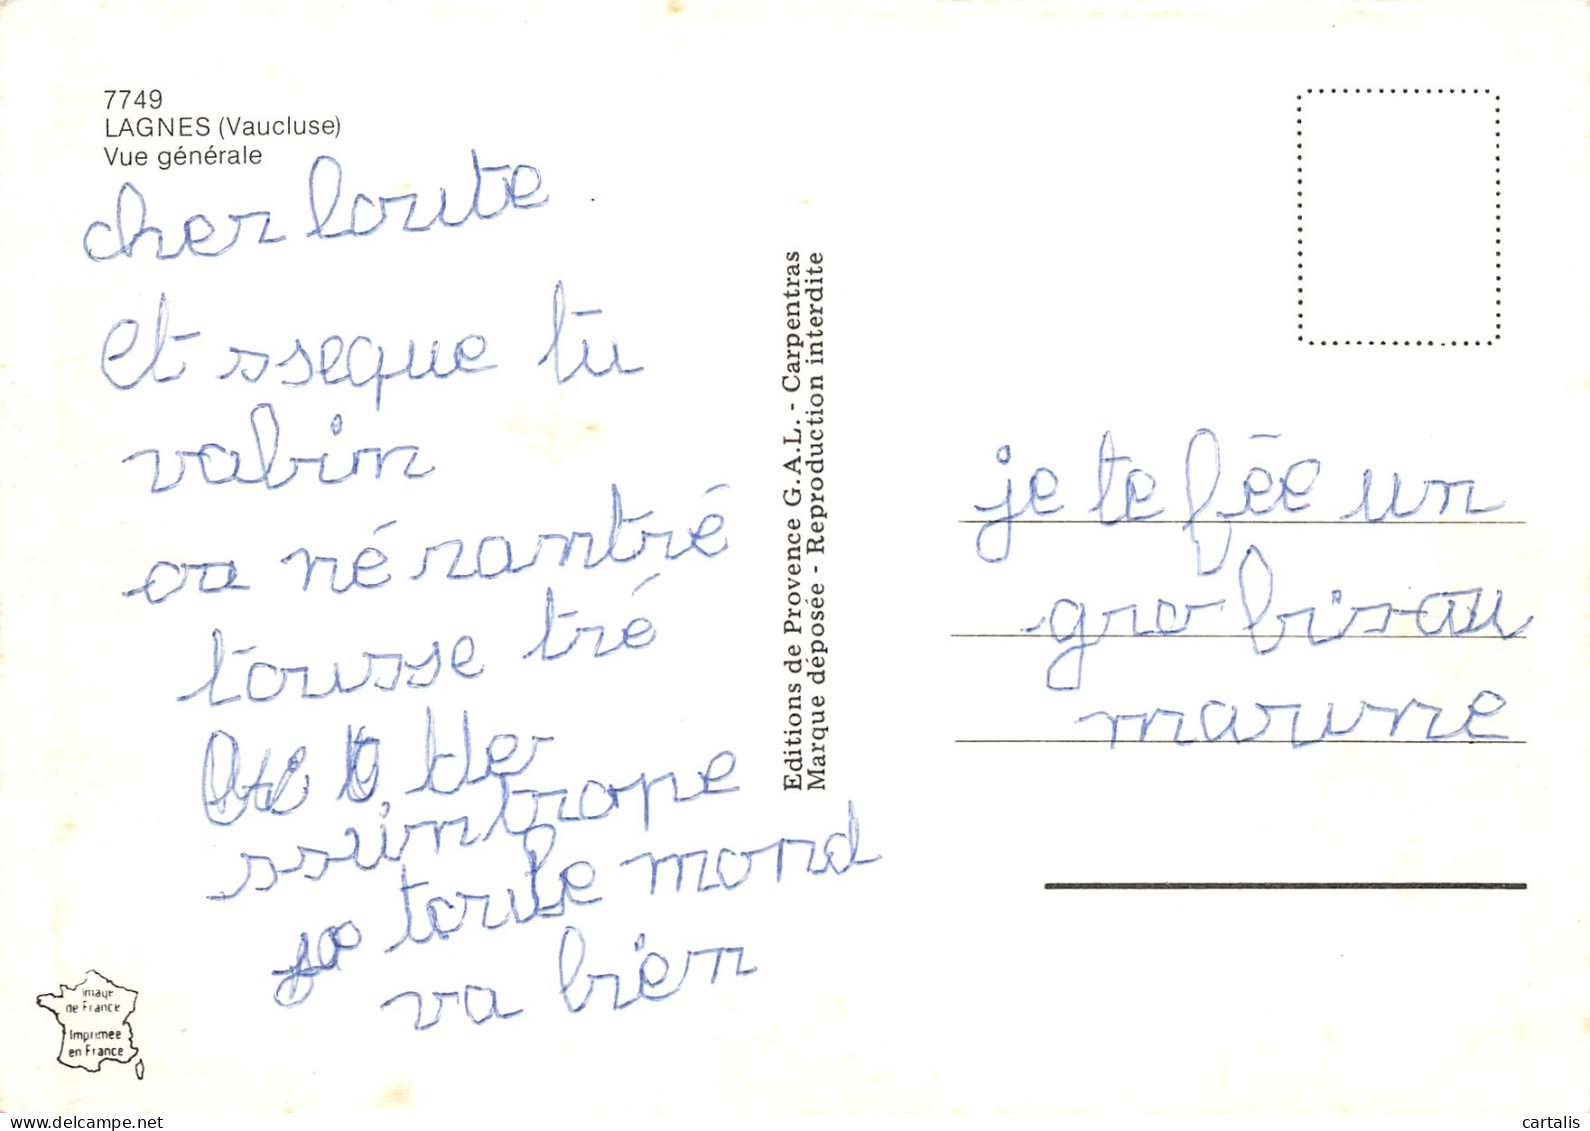 7749
LAGNES (Vaucluse)
Vue générale
cher loute
et sseque tu
vabin
on né rantré
tousse tré
de
ssintrope
toule mond
va bien
Editions de Provence G.A.L. - Carpentras
Marque déposée - Reproduction interdite
je te fée un
gro bisou
marune
Image
de France
Imprimée
en France
cartalis